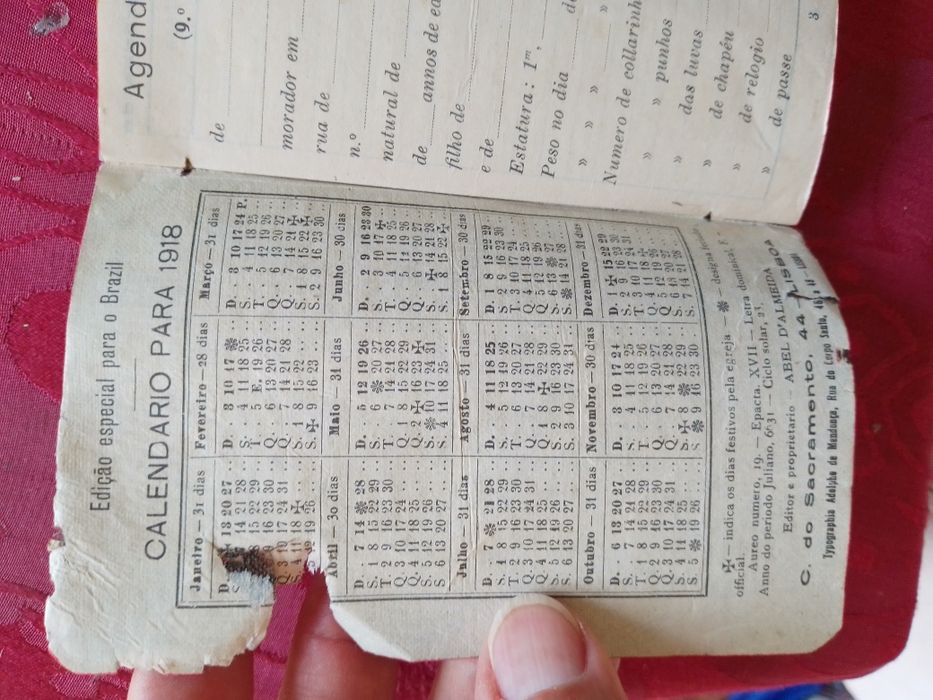 Edição especial para o Brazil
CALENDARIO PARA 1918
Janeiro — 31 dias Fevereiro — 28 dias Março — 31 dias
D. 13 20 27 D. 3 10 17 ❋ D. 3 10 17 24 P.
14 21 28 S. 4 11 18 25 S. 4 11 18 25
15 22 29 T. 5 E. 19 26 T. 5 12 19 26
16 23 30 Q. 6 13 20 27 Q. 6 13 20 27
Q. 3 10 17 24 31 Q. 7 14 21 28 Q. 7 14 21 ✠
S. 4 11 18 ✠ S. 1 8 15 22 S. 1 8 15 22 ✠
19 26 S. ✠ 9 16 23 S. 2 9 16 23 30
Abril — 30 dias Maio — 31 dias Junho — 30 dias
D. 7 14 ❋ 28 D. 5 12 19 26 D. 2 9 16 23 30
S. 1 8 15 22 29 S. 6 ❋ 20 27 S. 3 10 17 ✠
T. 2 9 16 23 30 T. 7 14 21 28 T. 4 11 18 25
Q. 3 10 17 24 Q. 1 8 15 22 29 Q. 5 12 19 26
Q. 4 11 18 25 Q. 2 ✠ 16 23 ✠ Q. 6 13 20 27
S. 5 12 19 26 S. ❋ 10 17 24 31 S. ✠ 14 21 28
S 6 13 20 27 S. 4 11 18 25 S. 1 8 15 22 ✠
Julho — 31 dias Agosto — 31 dias Setembro — 30 dias
D. 7 ❋ 21 28 D. 4 11 18 25 D. 1 8 15 22 29
S. 1 8 15 22 29 S. 5 12 19 26 S. 2 9 16 23 30
T. 2 9 16 23 30 T. 6 13 20 27 T. 3 10 17 24
Q. 3 10 17 24 31 Q. 7 14 21 28 Q. 4 11 18 25
Q. 4 11 18 25 Q. 1 8 ✠ 22 29 Q. 5 12 19 26
S. 5 12 19 26 S. 2 9 16 23 30 S. 6 13 ❋ 27
S. 6 13 20 27 S. 3 10 17 24 31 S. ❋ 14 21 28
Outubro — 31 dias Novembro — 30 dias Dezembro — 31 dias
D. 6 13 20 27 D. 3 10 17 24 D. 1 ✠ 15 22 29
S. 7 14 21 28 S. 4 11 18 25 S. 2 9 16 23 30
T. 1 8 15 22 29 T. 5 12 19 26 T. 3 10 17 24 31
Q. 2 9 16 23 30 Q. 6 13 20 27 Q. 4 11 18 ✠
Q. 3 10 17 24 31 Q. 7 14 21 28 Q. 5 12 19 26
S. 4 11 18 25 S. ✠ 8 ❋ 22 29 S. 6 13 20 27
S. 5 ❋ 19 26 S. ❋ 9 16 23 30 S. 7 14 21 28
✠ — indica os dias festivos pela egreja — ❋ — designa
official.
Aureo numero, 19. — Epacta, XVII. — Letra dominical, F.
Anno do periodo Juliano, 6631 — Ciclo solar, 23.
Editor e proprietario — ABEL D'ALMEIDA
C. do Sacramento, 44 LISBOA
Typographia Adolpho de Mendonça, Rua do Corpo Santo, 46
Agend
(9.º
de
morador em
rua de
n.º
natural de
de annos de
filho de
e de
Estatura: 1m,
Peso no dia de
» » »
» » »
Numero de collarinh
» » punhos
» das luvas
» de chapéu
» de relogio
» de passe
3